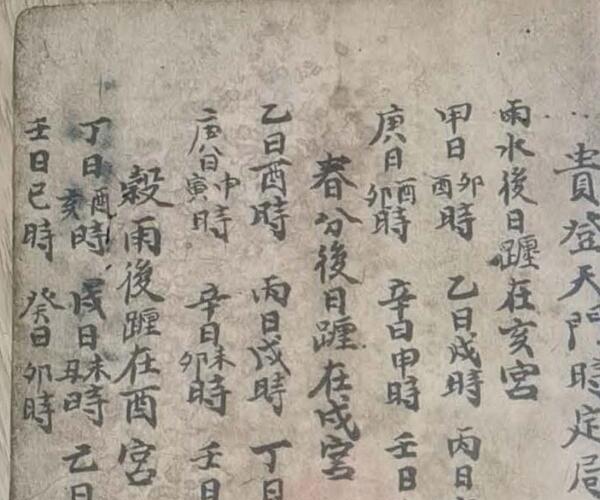 貴登天門時定局
雨水後日躔在亥宮
甲日卯酉時 乙日戌時 丙日
庚日酉卯時 辛日申時 壬日
春分後日躔在戌宮
乙日酉時 丙日戌時 丁日
庚日申寅時 辛日未卯時 壬日
穀雨後躔在酉宮
丁日酉亥時 戊日未丑時 己日
壬日巳時 癸日卯時